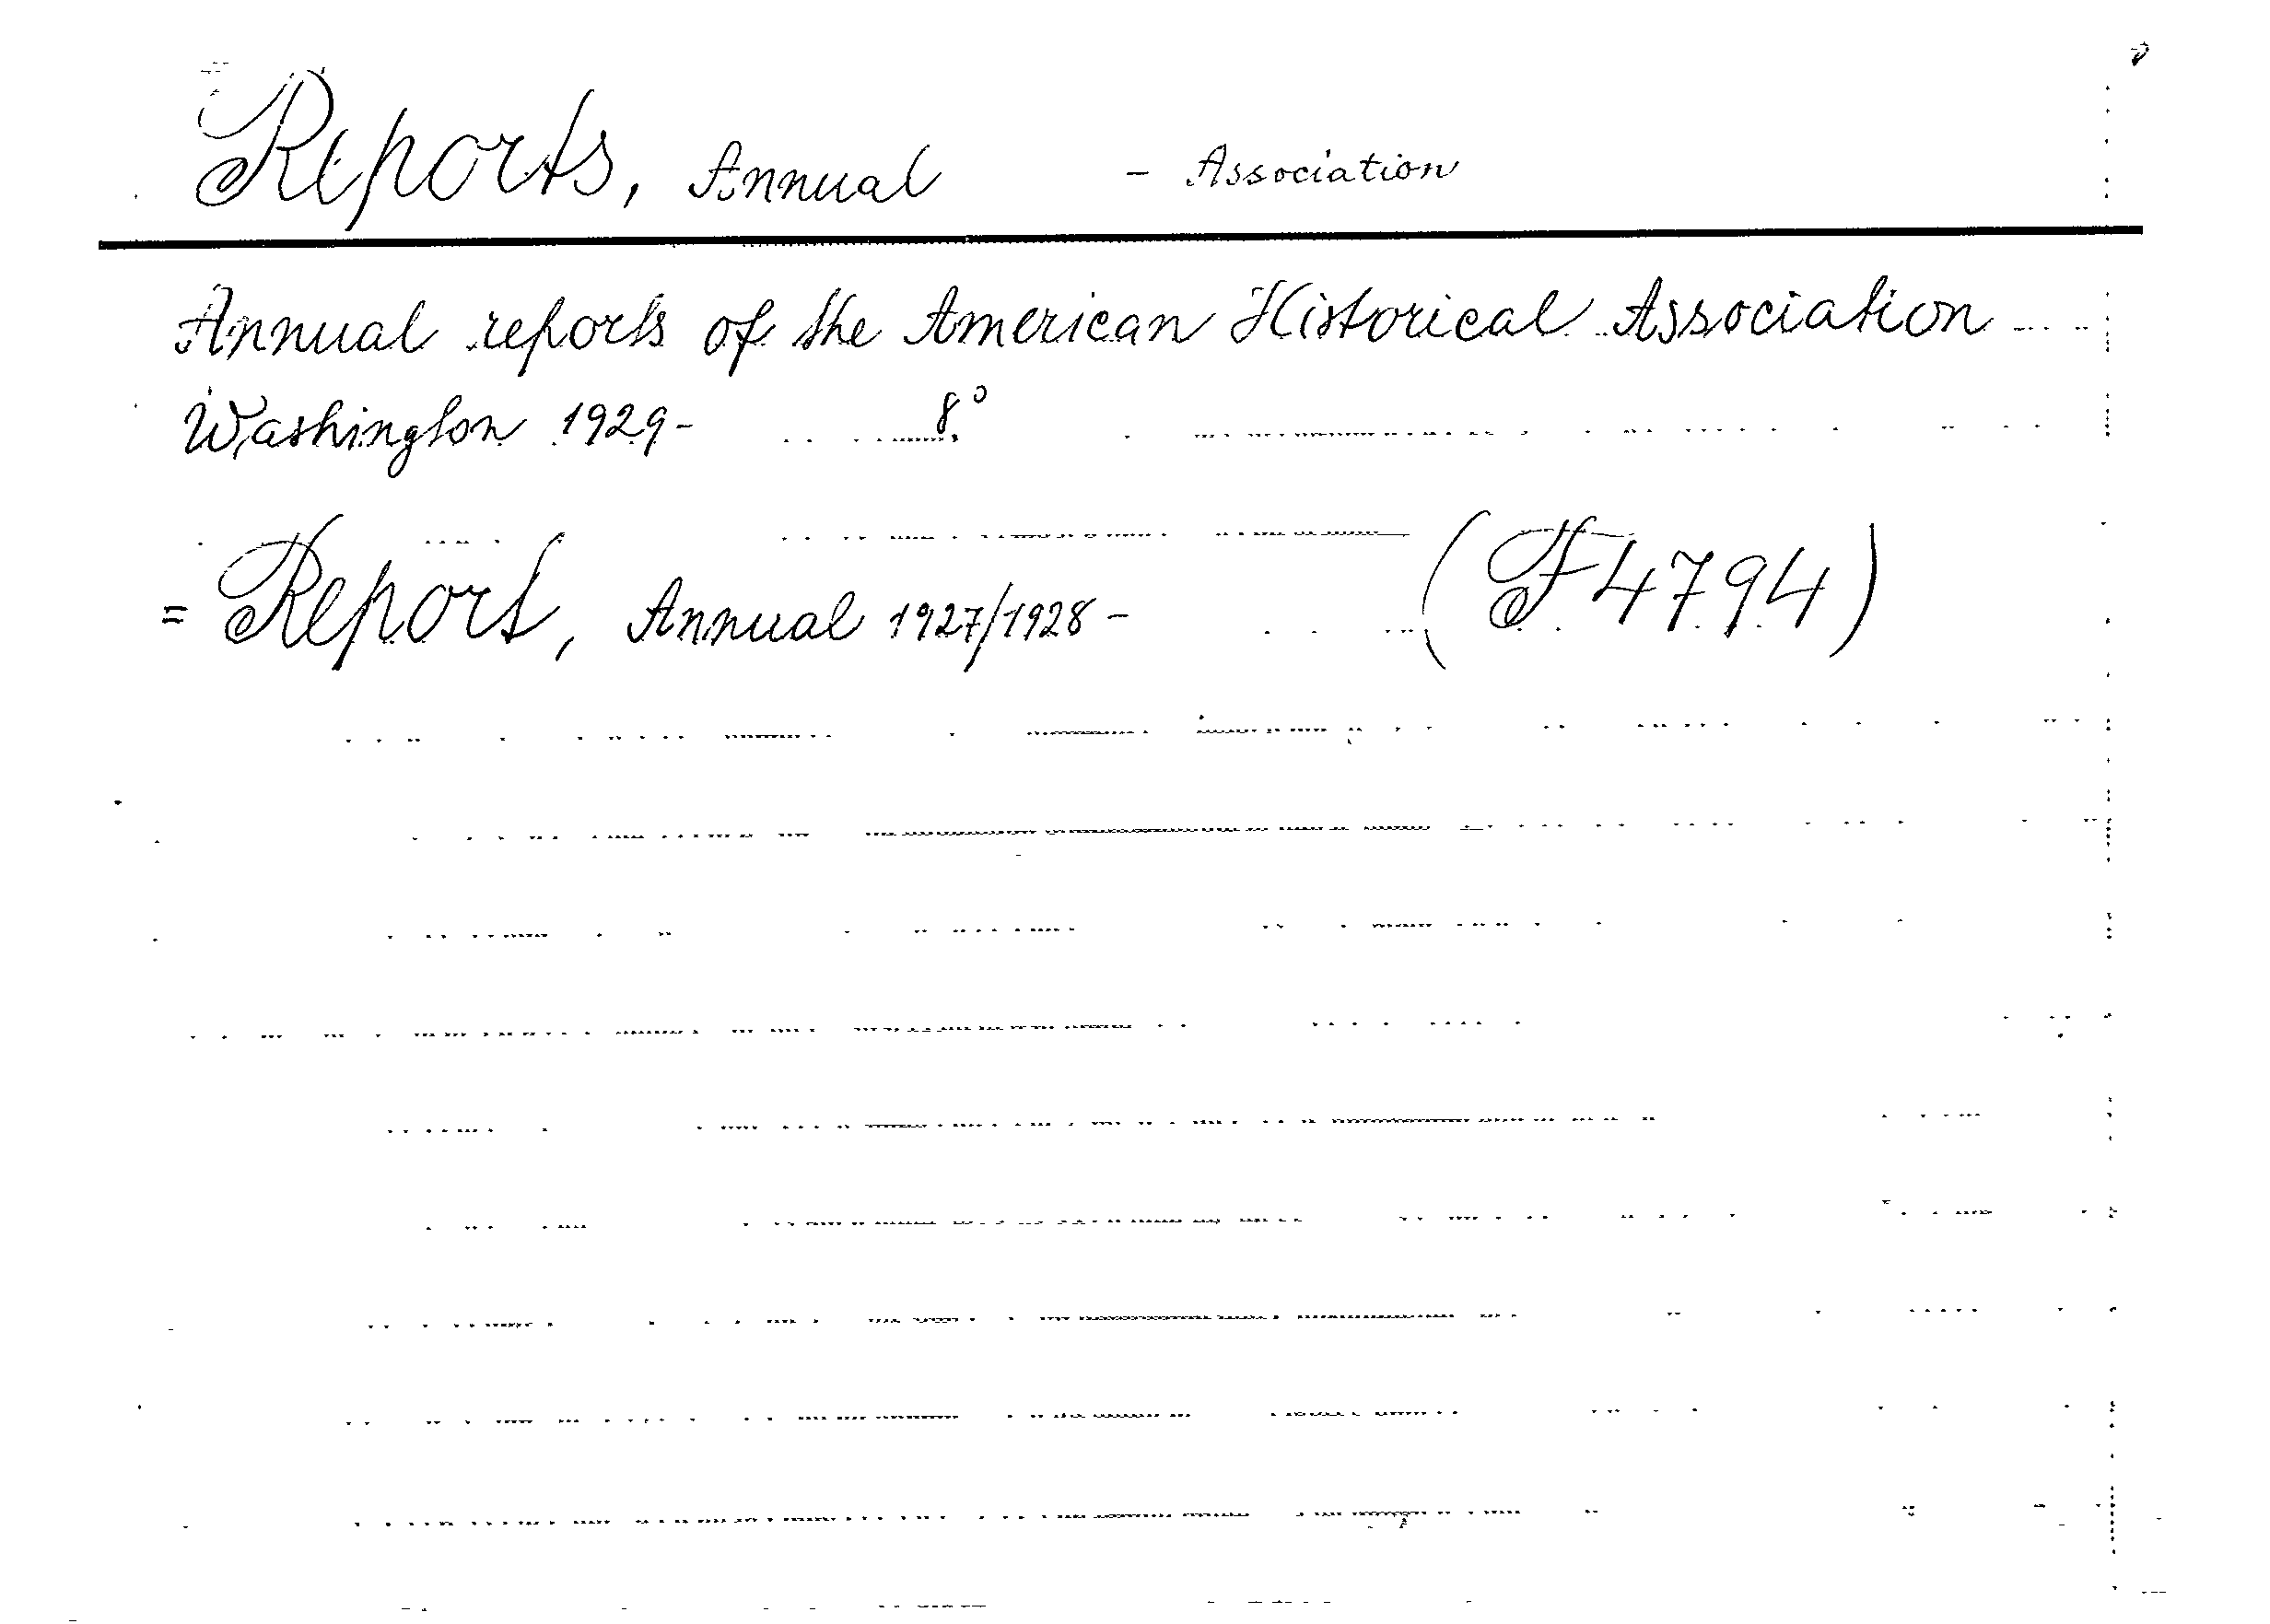 Reports, Annual - Association
Annual reports of the American Historical Association
Washington 1929- 8°
= Report, Annual 1927/1928- (F 4794)